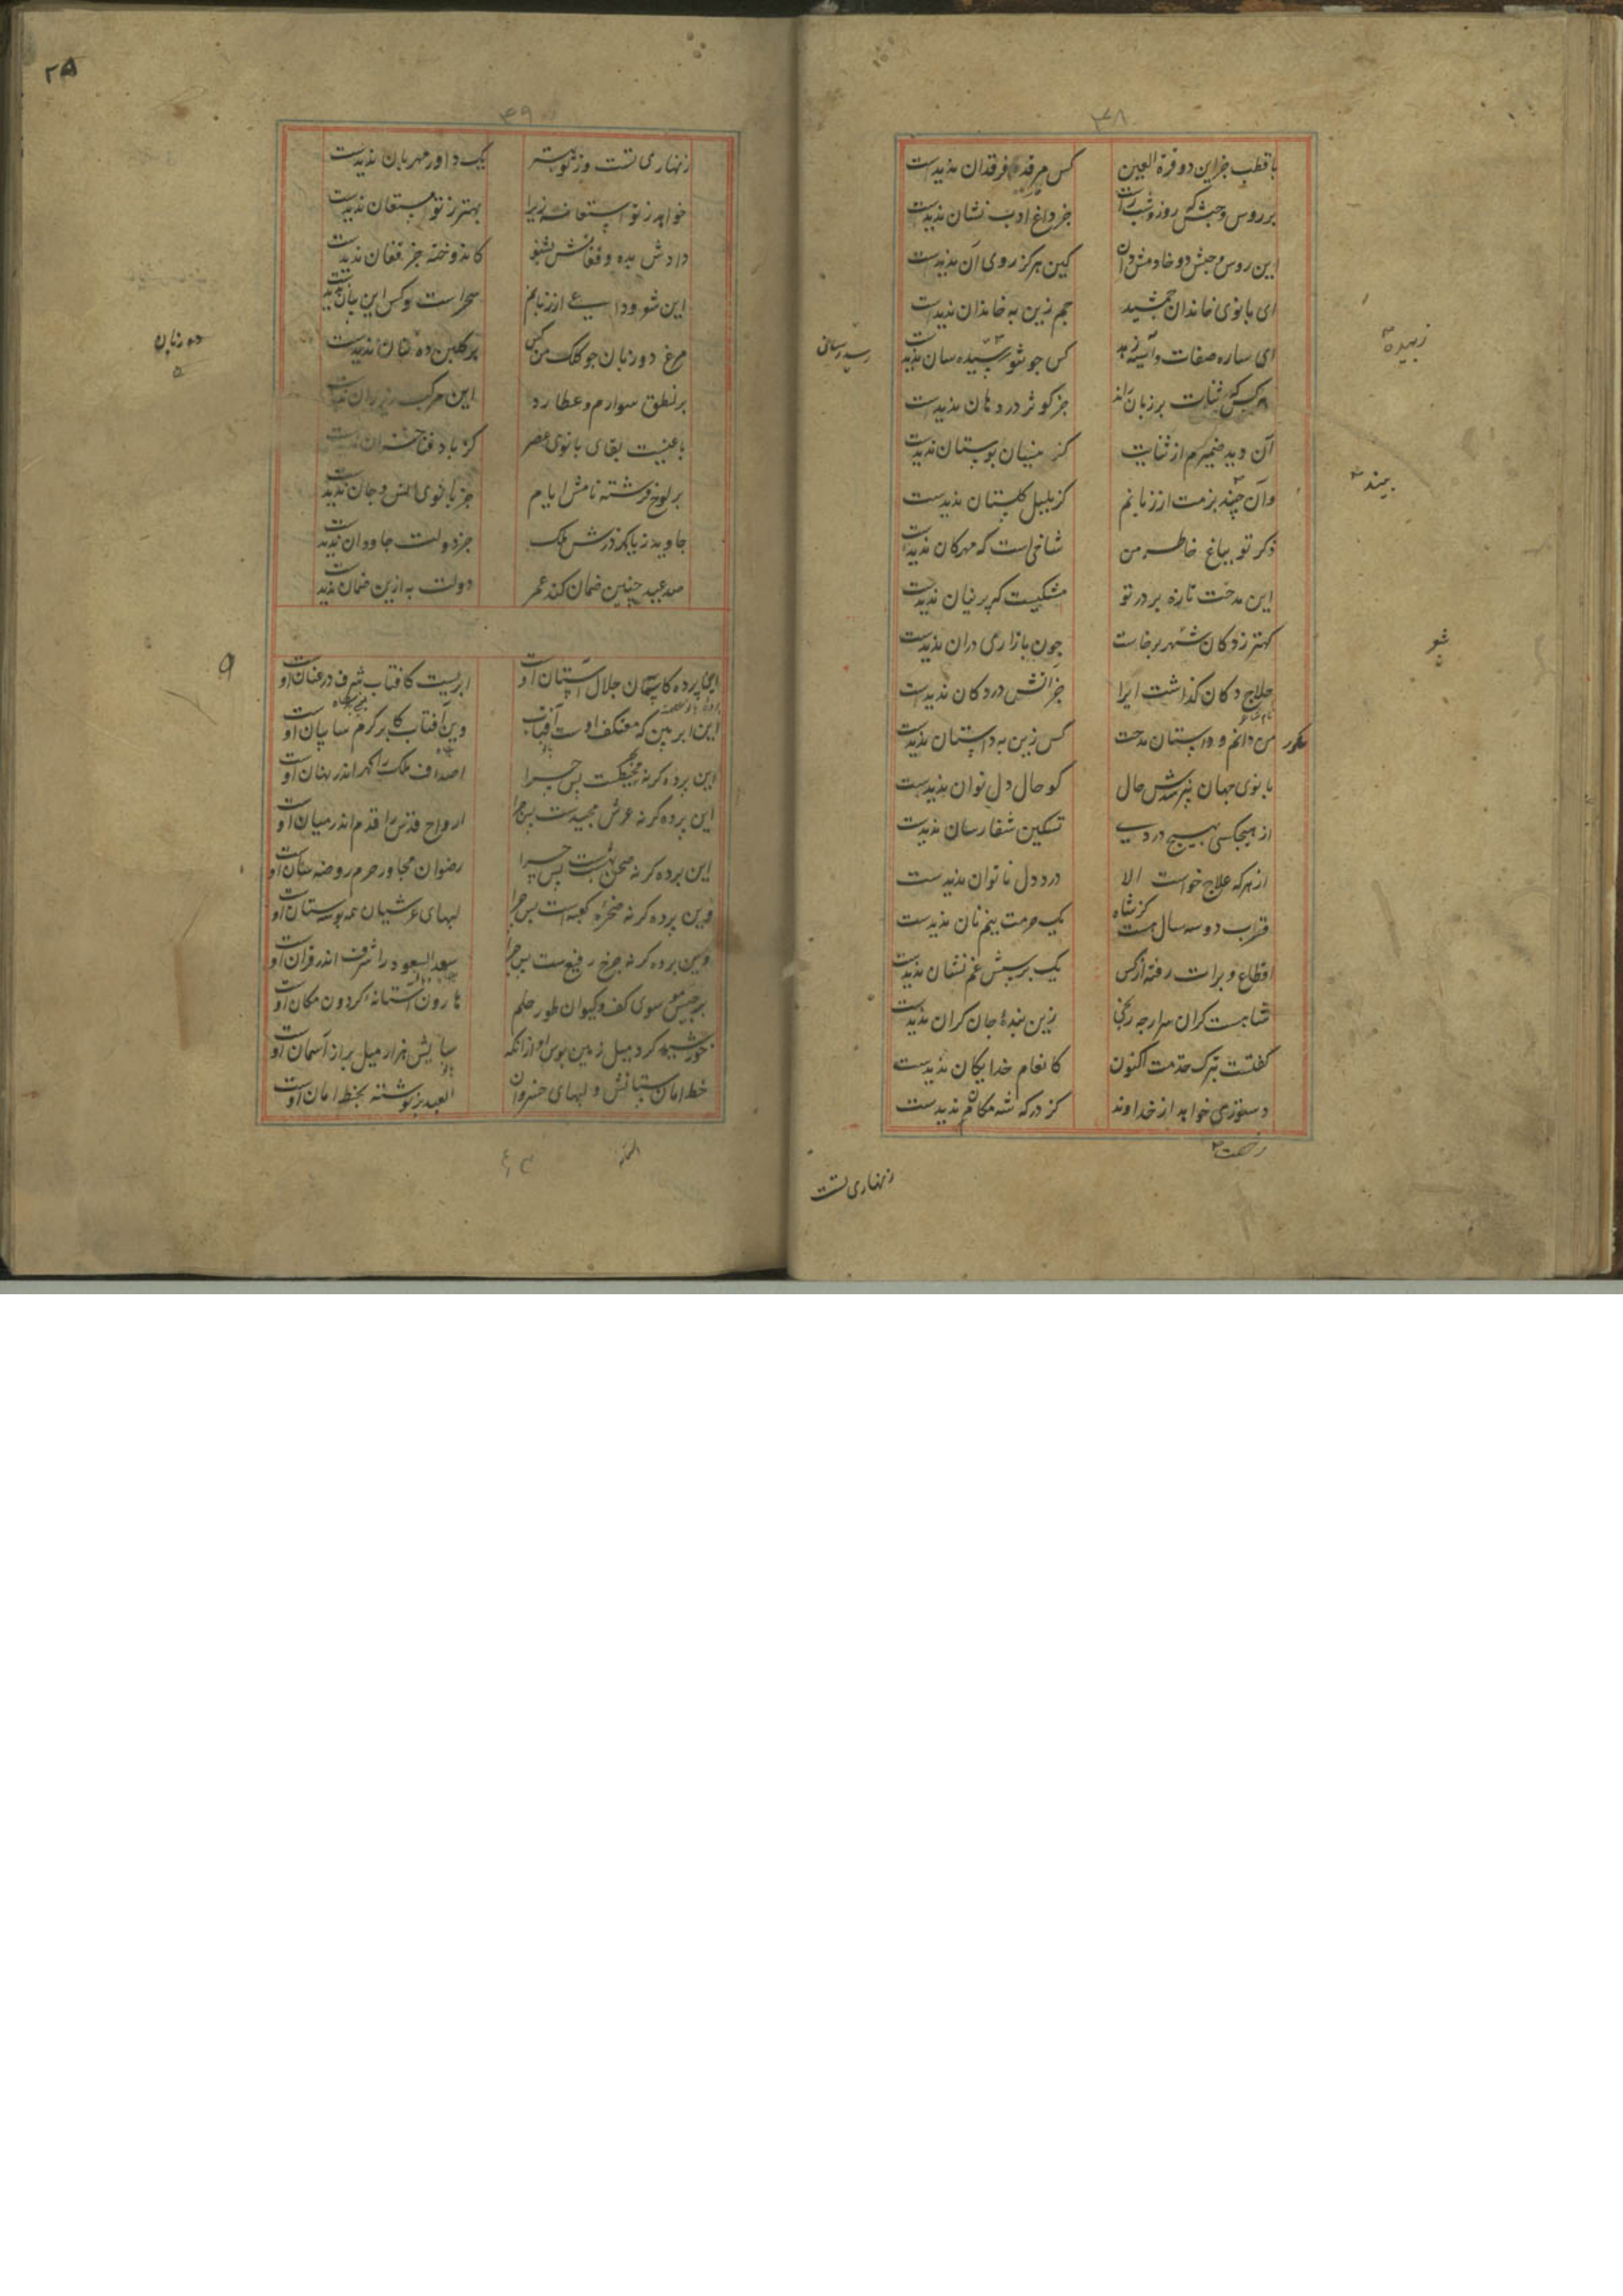 ۳۸
با قطب جز این دو قرة العین کس مرقد فرقدان ندیدست
بر روس و حبش که روز و شب راست جز داغ ادب نشان ندیدست
این روس و حبش دو خادمش دان کین هرگز روی آن ندیدست
ای بانوی خاندان جمشید جم زین به خاندان ندیدست
ای ساره صفات و آسیه زهد کس چو تو زبیده سان ندیدست
هر کس که ثنات بر زبان راند جز کوثر در دهان ندیدست
آن دید ضمیرم از ثنایت کز نیسان بوستان ندیدست
وآن بیند بزمت از زبانم کز بلبل گلستان ندیدست
ذکر تو بباغ خاطر من شاخی است که مهرکان ندیدست
این مدحت تازه بر در تو مشکیست که پرنیان ندیدست
کهتر ز دکان شهر برخاست چون بازاری دران ندیدست
حلاج دکان گذاشت ایرا جز آتش در دکان ندیدست
من دانم و داستان مدحت کس زین به داستان ندیدست
بانوی جهان نپرسدش حال کو حال دل توان ندیدست
از هیچکسی بهیچ دردی تسکین شفا رسان ندیدست
از هر که علاج خواست الا درد دل ناتوان ندیدست
قراب دو سه سال هست کز شاه یک حرمت نیم نان ندیدست
اقطاع و برات رفته از کس یک پرسش غم نشان ندیدست
شاهست گران سر ارچه رنجی زین بندهٔ جان گران ندیدست
گفتست بترک خدمت اکنون کانعام خدایگان ندیدست
دستوری خواهد از خداوند کز درگه شه مکان ندیدست
زنهاری تست
زبیده
بیند
شو
۲۵
۳۹
زنهاری تست و ز تو بهتر یک داور مهربان ندیدست
خواهد ز تو استعانه زیرا بهتر ز تو مستعان ندیدست
دادش بده و فغانش بشنو کاندوخته جز فغان ندیدست
این شعر وداعی از زبانم سحر است و کس این بیان ندیدست
مرغ دو زبان چو کلک من کس بر گلبن ده بنان ندیدست
بر نطق سوارم و عطارد این مرکب زیر ران ندیدست
باغیست بقای بانوی عصر کز باد فنا خزان ندیدست
بر لوح فرشته نامش ایام جز بانوی انس و جان ندیدست
جاوید زیاد کز درش ملک جز دولت جاودان ندیدست
صد عید چنین ضمان کند عمر دولت به ازین ضمان ندیدست
دو زبان
۹
اینجا پرده کاسمان جلال آستان اوست ابریست کافتاب شرف در عنان اوست
این ابر بین که معتکف اوست آفتاب وین آفتاب کابر کرم سایبان اوست
این پرده گر نه محیطست پس چرا اصداف ملک را گهر اندر نهان اوست
این پرده گر نه عرش مجیدست پس چرا ارواح قدس را قدم اندر میان اوست
این پرده گر نه صحن بهشت است پس چرا رضوان مجاور حرم روضه سان اوست
وین پرده گر نه صخرهٔ کعبه است پس چرا لبهای عرشیان همه بوسستان اوست
وین پرده گر نه چرخ رفیع ست پس چرا سعد السعود را شرف اندر قران اوست
برجیس موسوی کف و کیوان طور حلم هارون آستانهٔ گردون مکان اوست
خورشید کرد میل زمین بوس او ازانکه بالاش هزار میل بر از آسمان اوست
خط امان ستانش و لبهای خسروان العبد نوشته بخط امان اوست